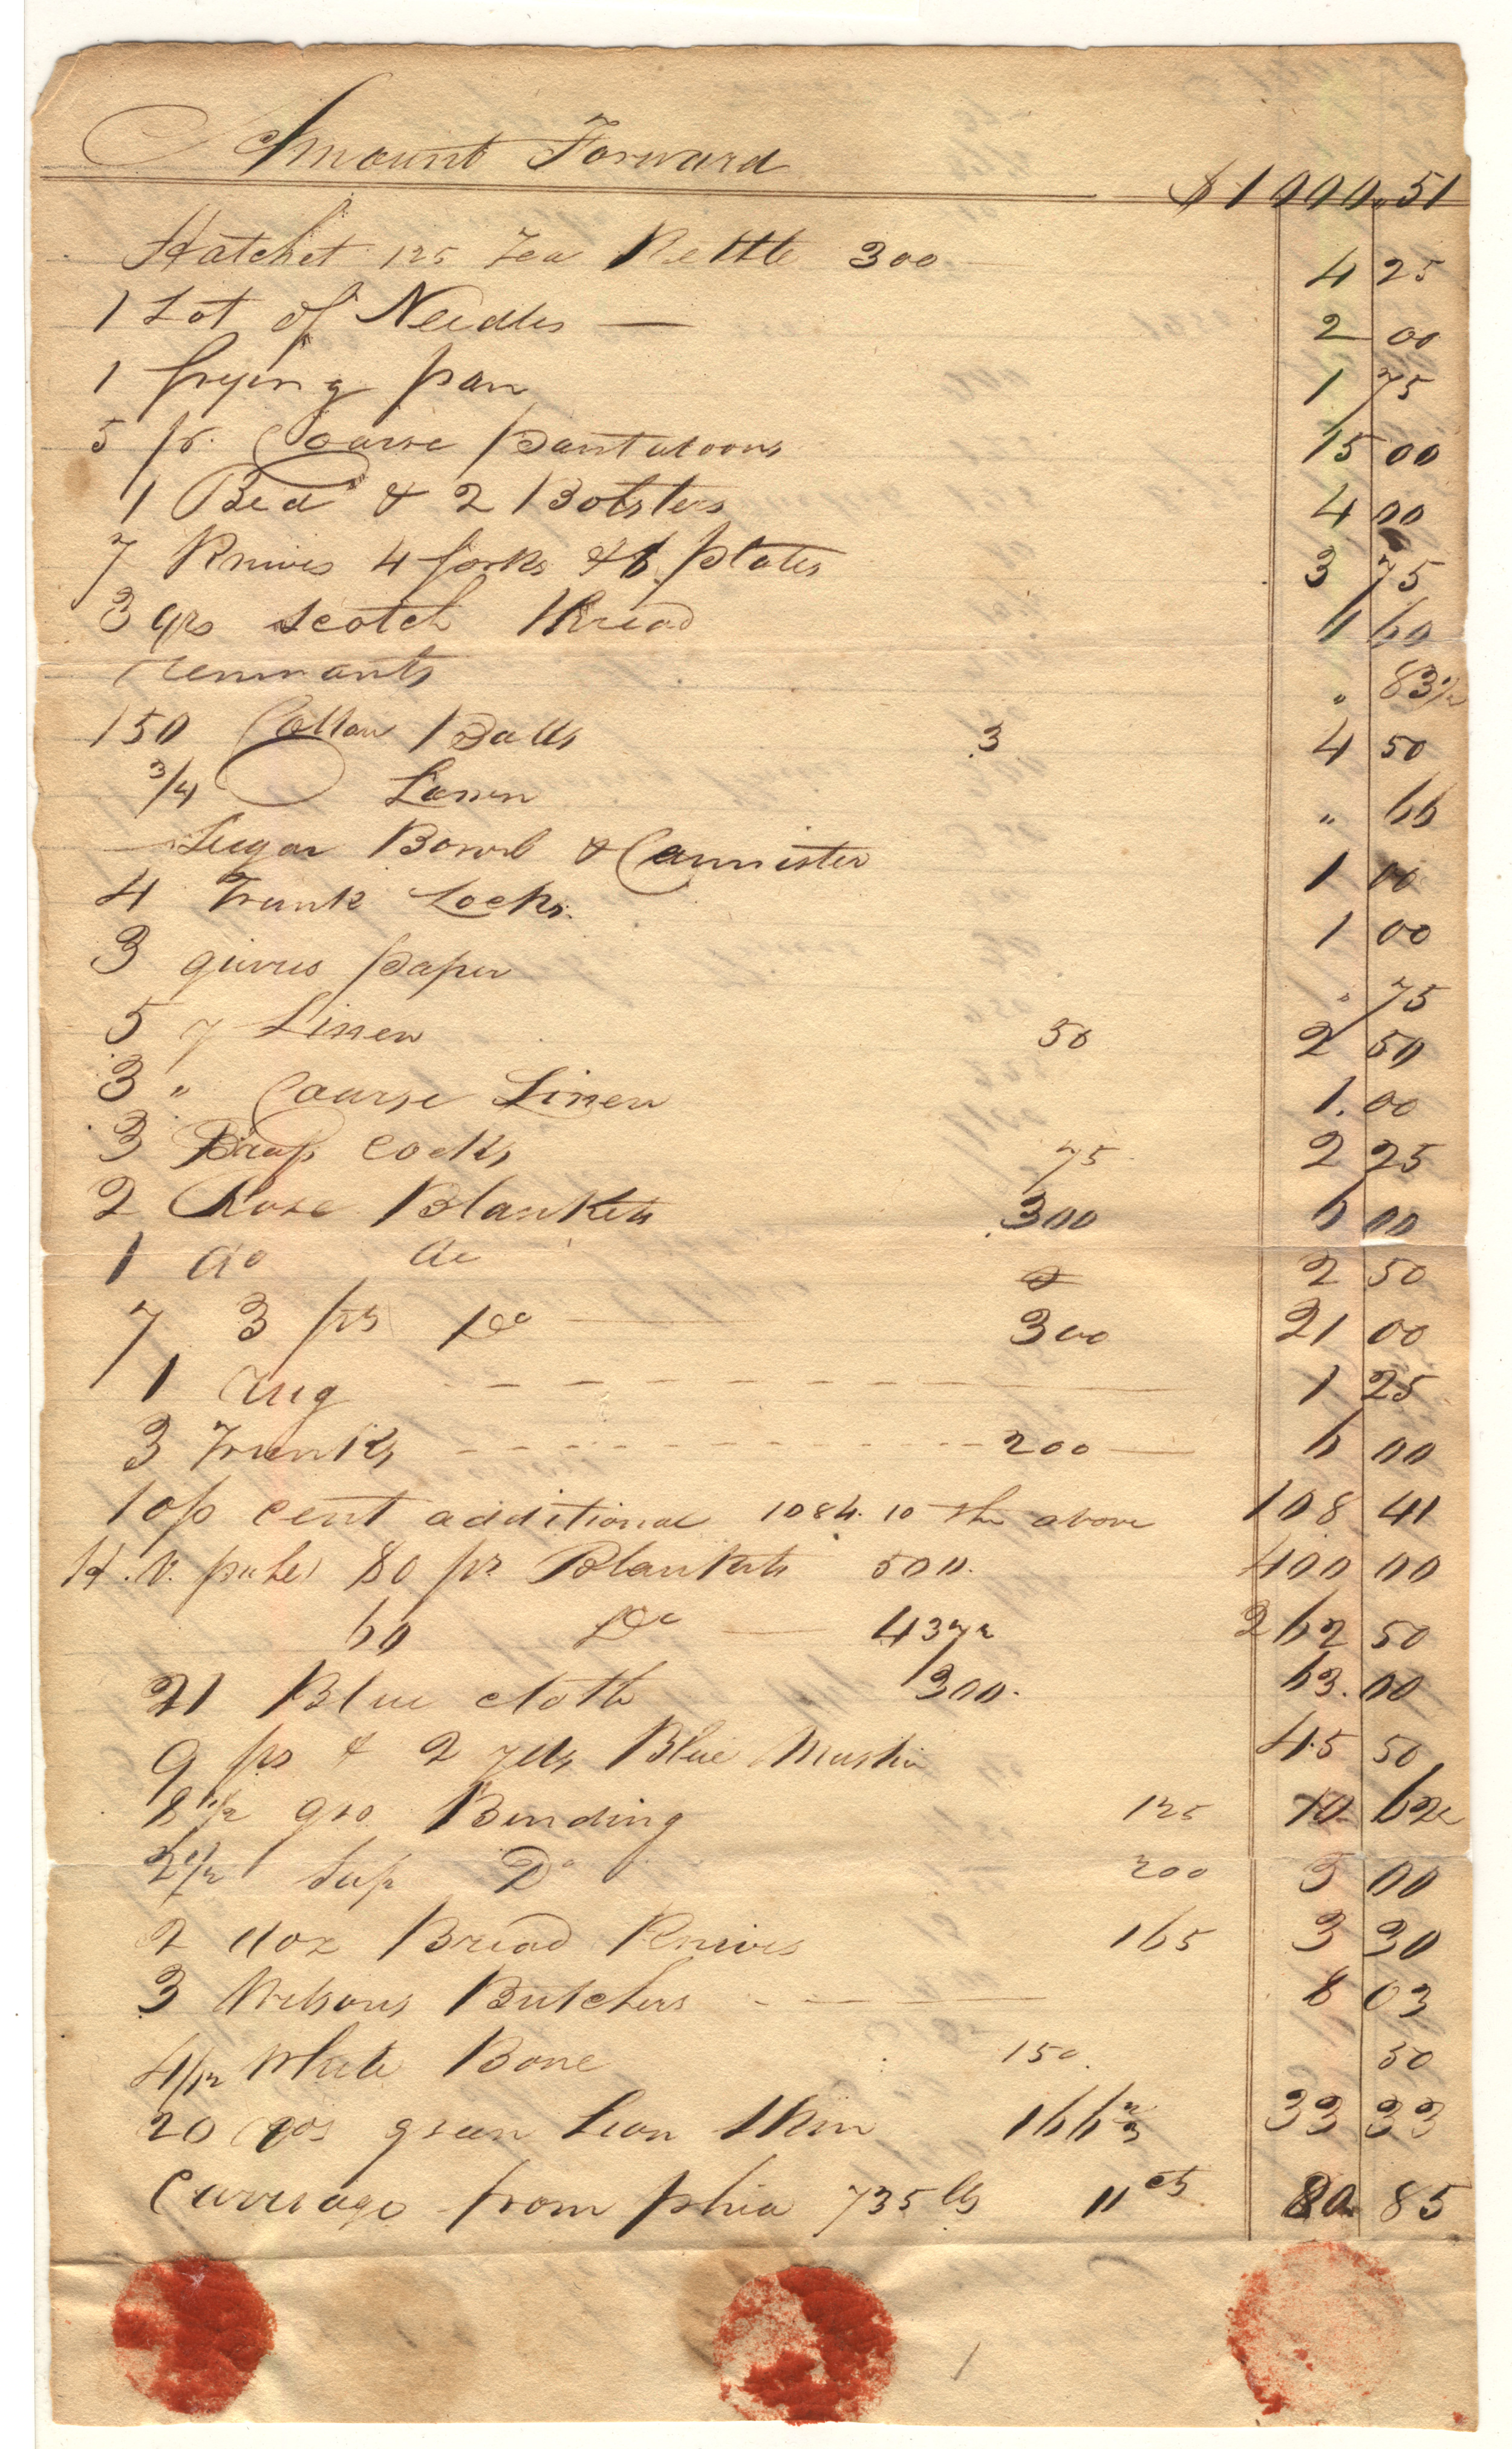 Amount Forward
$1000.51
Hatchet 125 Tea Kettle 300 4 25
1 Lot of Needles — 2 00
1 frying pan 1 75
5 pr. Coarse pantaloons 15 00
1 Bed & 2 Bolsters 4 00
7 Knives 4 forks & 6 plates 3 75
3 qrs Scotch thread 1 60
remnants " 83½
150 Cotton Balls 3 4 50
3/4 Lawn " 66
Sugar Bowl & Cannister 1 00
4 Trunk Locks. 1 00
3 quires paper " 75
5 y Linen 50 2 50
3 " Coarse Linen 1.00
3 Brass Cocks 75 2 25
2 Rose Blankets 300 6 00
1 do do 2 50
7 3 pts Do 300 21 00
1 rug 1 25
3 Trunks 200 6 00
10 p cent additional 1084.10 the above 108 41
80 pr Blankets 500. 400 00
60 Do 437½ 262 50
21 Blue cloth 300. 63.00
9 ps & 2 yds Blue Muslin 45 50
8 1/2 gro Binding 125 10 62½
2 1/2 Sup Do 200 5 00
2 doz Bread Knives 165 3 30
3 Wilsons Butchers 8 03
4/12 White Bone 150. 50
20 yds green Lion Skin 166⅔ 33 33
Carriage from phia 735 lbs 11 cts 80 85